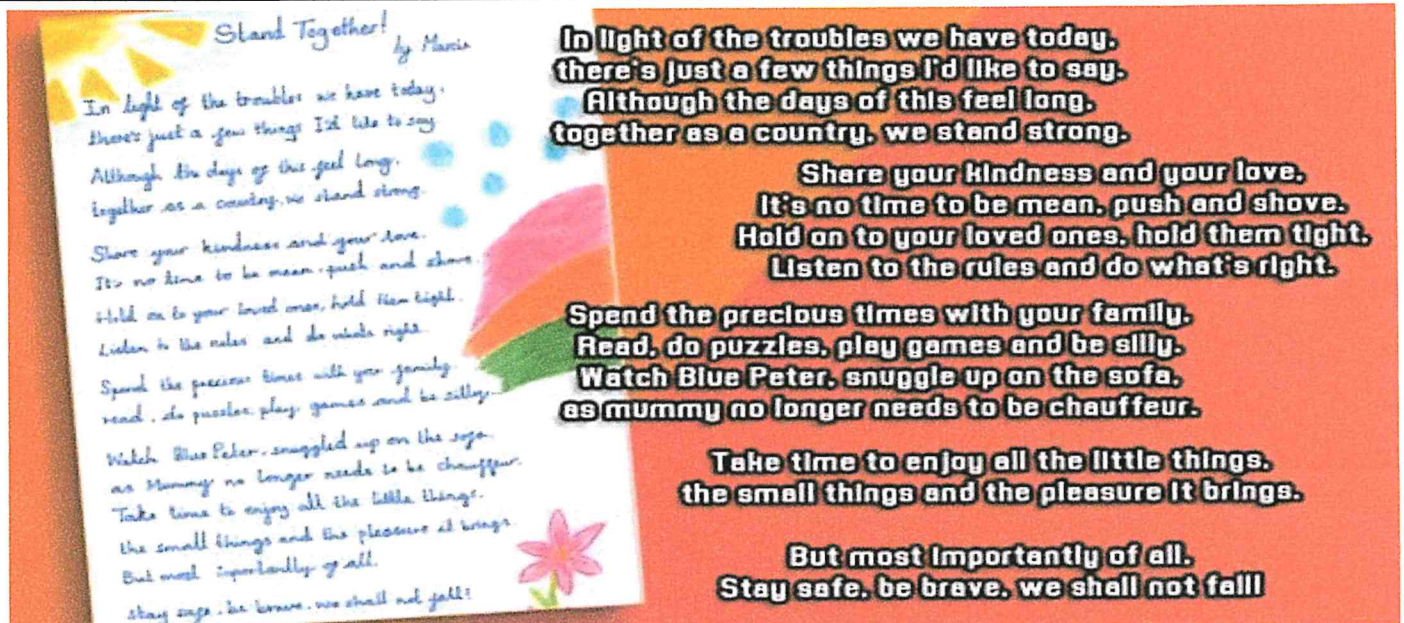 Stand Together!
by Marcia
In light of the troubles we have today,
there's just a few things I'd like to say
Although the days of this feel long,
together as a country, we stand strong.
Share your kindness and your love.
It's no time to be mean, push and shove.
Hold on to your loved ones, hold them tight.
Listen to the rules and do whats right.
Spend the precious times with your family.
read, do puzzles, play games and be silly.
Watch Blue Peter, snuggled up on the sofa.
as Mummy no longer needs to be chauffeur.
Take time to enjoy all the little things.
the small things and the pleasure it brings.
But most importantly of all.
Stay safe, be brave, we shall not fall!
In light of the troubles we have today,
there's just a few things I'd like to say.
Although the days of this feel long,
together as a country, we stand strong.
Share your kindness and your love.
It's no time to be mean, push and shove.
Hold on to your loved ones, hold them tight.
Listen to the rules and do what's right.
Spend the precious times with your family.
Read, do puzzles, play games and be silly.
Watch Blue Peter, snuggle up on the sofa,
as mummy no longer needs to be chauffeur.
Take time to enjoy all the little things,
the small things and the pleasure it brings.
But most importantly of all,
Stay safe, be brave, we shall not fall!